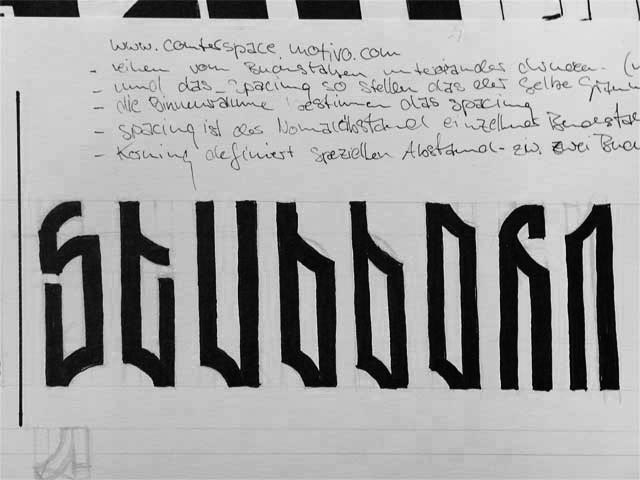 www.counterspace motivo.com
- reihen von Buchstaben untereinander drucken
- und das Spacing so stellen das der selbe
- die Binnenräume bestimmen das spacing
- spacing ist der Normalabstand einzelner
- Kerning definiert speziellen Abstand zw. zwei
stubborn